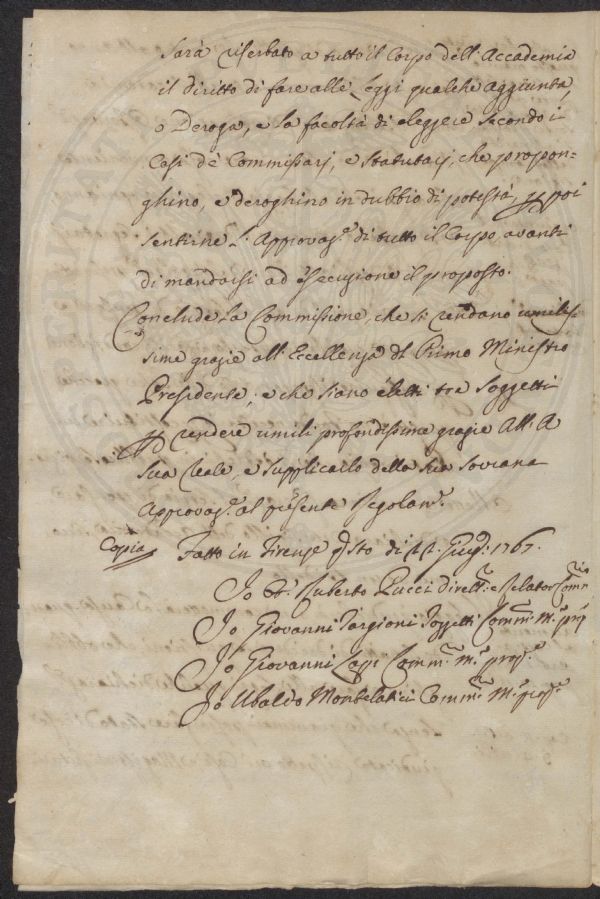 Sarà riserbato a tutto il Corpo dell'Accademia
il diritto di fare alle Leggi qualche aggiunta,
o Deroga, e la facoltà di eleggere secondo i
Casi dè Commissarj, e Statutarj, che propon-
ghino, e deroghino in dubbio di potestà, p poi
sentirne L'Approvaz.e di tutto il Corpo avanti
di mandarsi ad esecuzione il proposto.
Conclude La Commissione, che si rendano umilis-
sime grazie all'Eccellenza del Primo Ministro
Presidente, e che siano eletti tre Soggetti
p rendere umili profondissime grazie All'A
Sua Reale, e supplicarlo della sua sovrana
Approvaz.e al presente Regolam.o
Copia Fatto in Firenze q.sto dì Giug: 1767.
Io Ruberto Pucci Dirett.e e Relator Comm
Io Giovanni Targioni Tozzetti Comm. M. prop
Io Giovanni Lapi Comm. M. prop.
Io Ubaldo Montelatici Comm. M. prop.